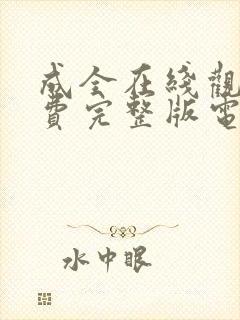 成全在綫觀
費完整版電
水中眼